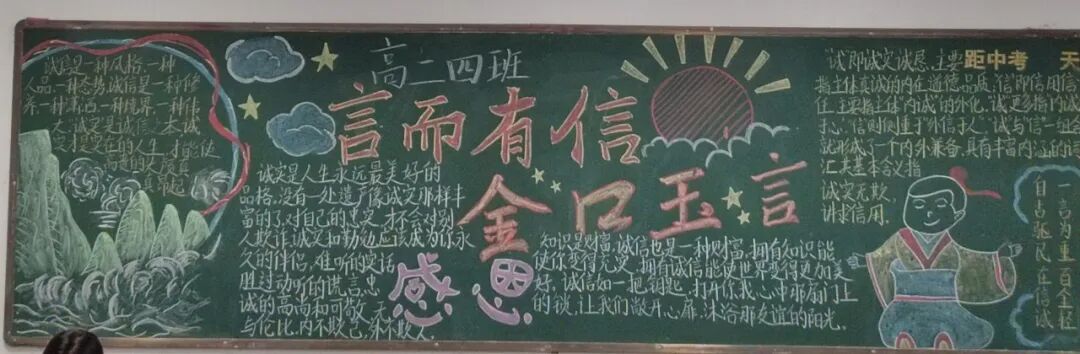 诚信是一种风格一种
人品,一种态势,诚信是一种修
养一种潇洒一种境界,一种伟
大,诚实是诚信之本,诚
实才是美的人生,才能达
高二四班
言而有信
金口玉言
诚实是人生永远最美好的
品格,没有一处遗产像诚实那样丰
富的了,对自己的忠实,才不会对别
人欺诈,诚实和勤劳应该成为你永
久的伴侣,难听的实话
胜过动听的谎言,忠
诚的高尚和可敬,无
与伦比,内不欺己,外不欺人
感恩
知识是财富,诚信也是一种财富,拥有知识能
使你变得充实,拥有诚信能使世界变得更加美
好,诚信如一把钥匙,打开你我心中那扇门上
的锁,让我们敞开心扉,沐浴那友谊的阳光。
诚即诚实诚恳,主要
距中考 天
指主体真诚的内在道德品质,信即信用信
任主要指主体内诚的外化,诚更多指内诚
于心,信则侧重于外信于人,诚与信一组合
就形成了一个内外兼备,具有丰富内涵的词
汇其基本含义指
诚实无欺,
讲求信用。
一言为重百金轻
自古驱民在信诚